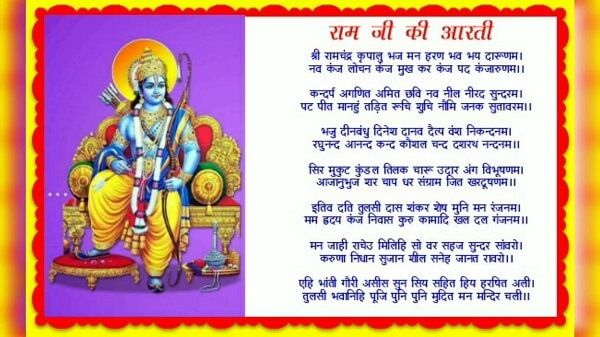 राम जी की आरती
श्री रामचंद्र कृपालु भज मन हरण भव भय दारूणम।
नव कंज लोचन कंज मुख कर कंज पद कंजारुणम।।
कन्दर्प अगणित अमित छवि नव नील नीरद सुन्दरम।
पट पीत मानहुं तड़ित रूचि शुचि नौमि जनक सुतावरम।।
भजु दीनबंधु दिनेश दानव दैत्य वंश निकन्दनम।
रघुनन्द आनन्द कन्द कौशल चन्द दशरथ नन्दनम।।
सिर मुकुट कुंडल तिलक चारू उदार अंग विभूषणम।
आजानुभुज शर चाप धर संग्राम जित खरदूषणम।।
इतिव दति तुलसी दास शंकर शेष मुनि मन रंजनम।
मम ह्रदय कंज निवास कुरु कामादि खल दल गंजनम।।
मन जाही राचेउ मिलिहि सो वर सहज सुन्दर सांवरो।
करुणा निधान सुजान शील सनेह जानत रावरो।।
एहि भांती गौरी असीस सुन सिय सहित हिय हरषित अली।
तुलसी भवानिहि पूजि पुनि पुनि मुदित मन मन्दिर चली।।